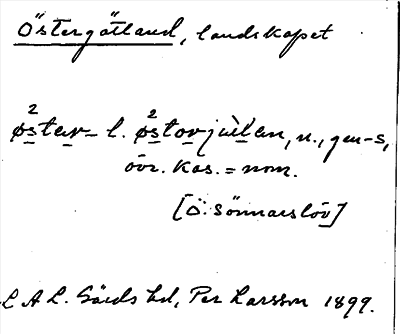 Östergötland, landskapet
østar- l. østorjulan, n., gen-s,
övr. kas. = nom.
[Ö. Sönnarslöv]
L A L. Gärds hd, Per Larsson 1899.